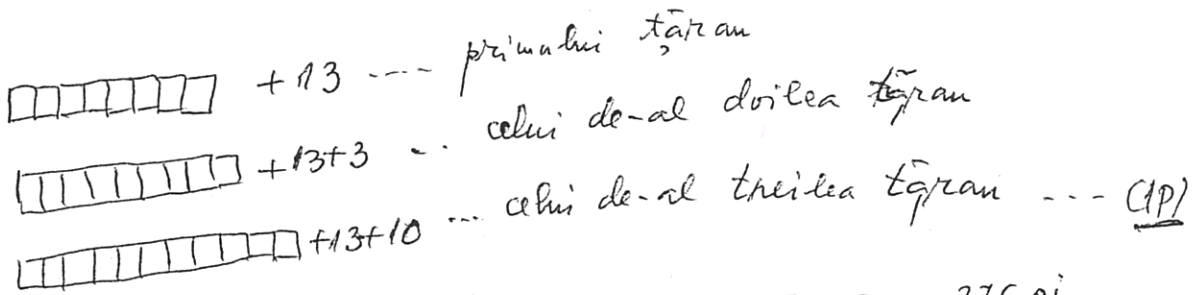 +13 .... primului țăran
+13+3 .. celui de-al doilea țăran
+13+10 ... celui de-al treilea țăran --- (1P)
376 oi